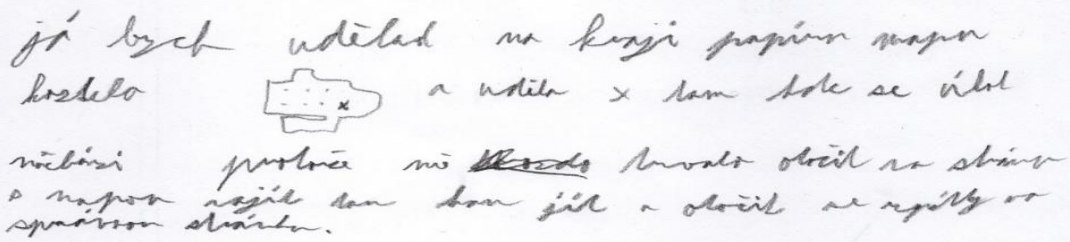 já bych udělal na kraji papíru mapu
kostela a x tam kde se
protože mě trvalo otočit na stránu
s mapou najít tam kam jít a otočit se zpátky na
správnou stránku.